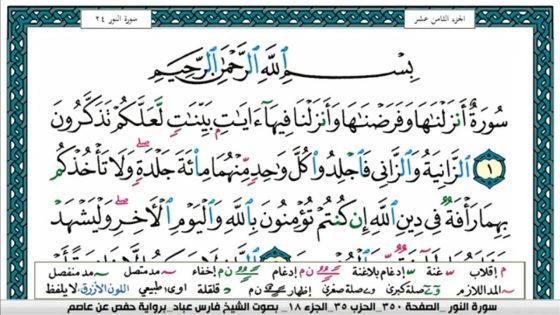 الجزء الثامن عشر
سورة النور ٢٤
بِسْمِ ٱللَّهِ ٱلرَّحْمَٰنِ ٱلرَّحِيمِ
سُورَةٌ أَنزَلْنَٰهَا وَفَرَضْنَٰهَا وَأَنزَلْنَا فِيهَآ ءَايَٰتٍۭ بَيِّنَٰتٍ لَّعَلَّكُمْ تَذَكَّرُونَ
١ ٱلزَّانِيَةُ وَٱلزَّانِى فَٱجْلِدُوا۟ كُلَّ وَٰحِدٍ مِّنْهُمَا مِا۟ئَةَ جَلْدَةٍ ۖ وَلَا تَأْخُذْكُم
بِهِمَا رَأْفَةٌ فِى دِينِ ٱللَّهِ إِن كُنتُمْ تُؤْمِنُونَ بِٱللَّهِ وَٱلْيَوْمِ ٱلْءَاخِرِ ۖ وَلْيَشْهَدْ
م إقلاب غنة إدغام بلاغنة ن م إدغام ن م إخفاء مد متصل مد منفصل
المد اللازم وى كبرى وى صلة صغرى إظهار ن م قلقلة اوى: طبيعي اللون الأزرق: لا يلفظ
سورة النور _ الصفحة ٣٥٠_ الحزب ٣٥_ الجزء ١٨_ بصوت الشيخ فارس عباد_ برواية حفص عن عاصم